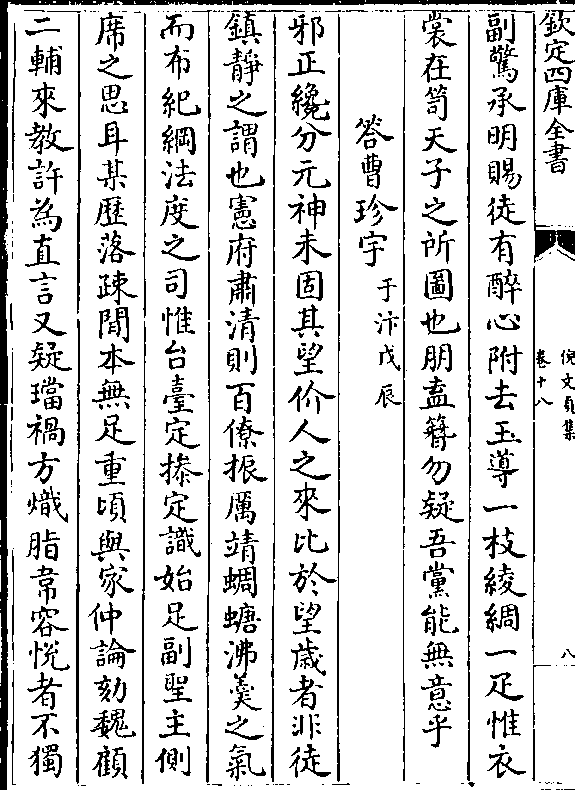 欽定四庫全書
倪文貞集
卷十八
八
副驚承明賜徒有醉心附去玉導一枝綾綢一疋惟衣
裳在笥天子之所圖也朋盍簪勿疑吾黨能無意乎
答曹珍宇于汴戊辰
邪正纔分元神未固其望价人之來比於望歲者非徒
鎮靜之謂也憲府肅清則百僚振厲靖蜩螗沸羹之氣
而布紀綱法度之司惟台臺定摻定識始足副聖主側
席之思耳某歷落疎闊本無足重頃與家仲論劾魏顧
二輔來教許為直言又疑璫禍方熾脂韋容悅者不獨